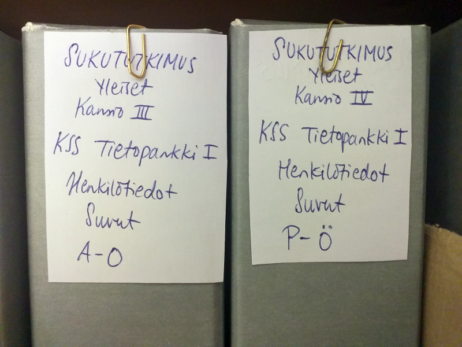 SUKUTUTKIMUS
Yleiset
Kansio III
KSS Tietopankki I
Henkilötiedot
Suvut
A-O
SUKUTUTKIMUS
Yleiset
Kansio IV
KSS Tietopankki I
Henkilötiedot
Suvut
P-Ö